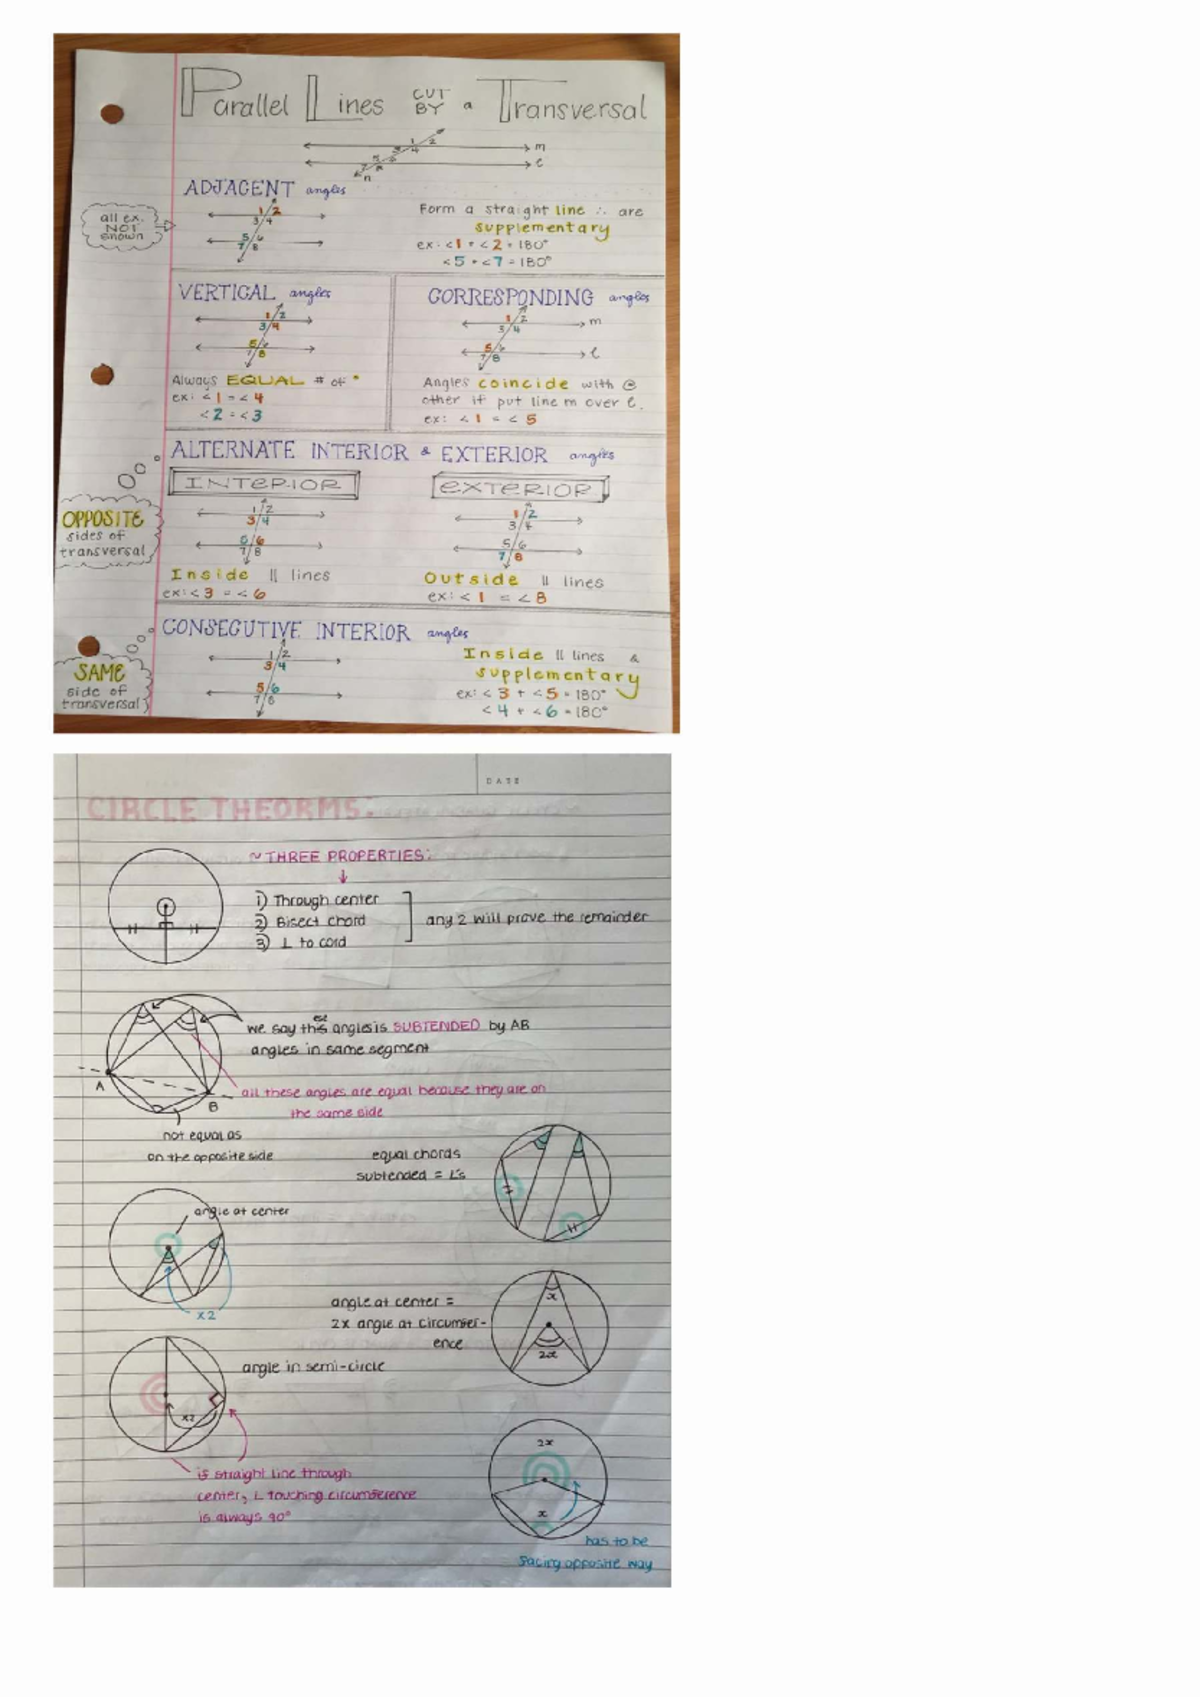 Parallel Lines CUT BY a Transversal
1 2
4
m
l
n
ADJACENT angles
all ex.
NOT
shown
1 2
3 4
5 6
7 8
Form a straight line ∴ are
supplementary
ex: <1 + <2 = 180°
<5 + <7 = 180°
VERTICAL angles
1 2
3 4
5 6
7 8
Always EQUAL # of °
ex: <1 = <4
<2 = <3
CORRESPONDING angles
1 2
3 4
m
5 6
7 8
l
Angles coincide with @
other if put line m over l.
ex: <1 = <5
ALTERNATE INTERIOR & EXTERIOR angles
OPPOSITE
sides of
transversal
INTERIOR
1 2
3 4
5 6
7 8
Inside || lines
ex: <3 = <6
EXTERIOR
1 2
3 4
5 6
7 8
Outside || lines
ex: <1 = <8
CONSECUTIVE INTERIOR angles
SAME
side of
transversal
1 2
3 4
5 6
7 8
Inside || lines &
supplementary
ex: <3 + <5 = 180°
<4 + <6 = 180°
DATE
CIRCLE THEORMS:
~ THREE PROPERTIES:
1) Through center
2) Bisect chord
3) ⊥ to cord
any 2 will prove the remainder
we say this angles is SUBTENDED by AB
angles in same segment
A
B
all these angles are equal because they are on
the same side
not equal as
on the opposite side
equal chords
subtended = L's
angle at center
x2
angle at center =
2x angle at circumfer-
ence
x
2x
angle in semi-circle
x2
if straight line through
center, L touching circumference
is always 90°
2x
x
has to be
facing opposite way